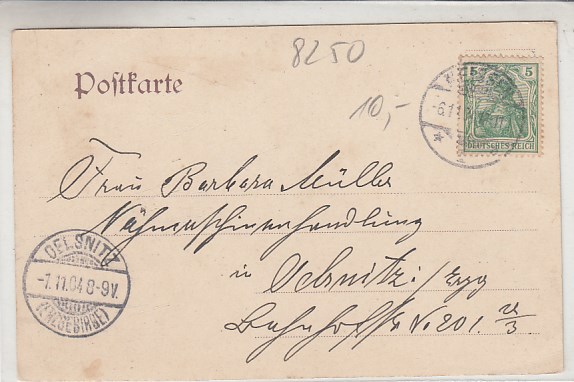 8250
Postkarte
10,-
5 5
DEUTSCHES REICH
-6.11
Frau Barbara Müller
Nähmaschinenhandlung
in Oelsnitz/Erzg
Bahnhofstr No 201.
OELSNITZ
-7.11.04 8-9V.
(ERZGEBIRGE)